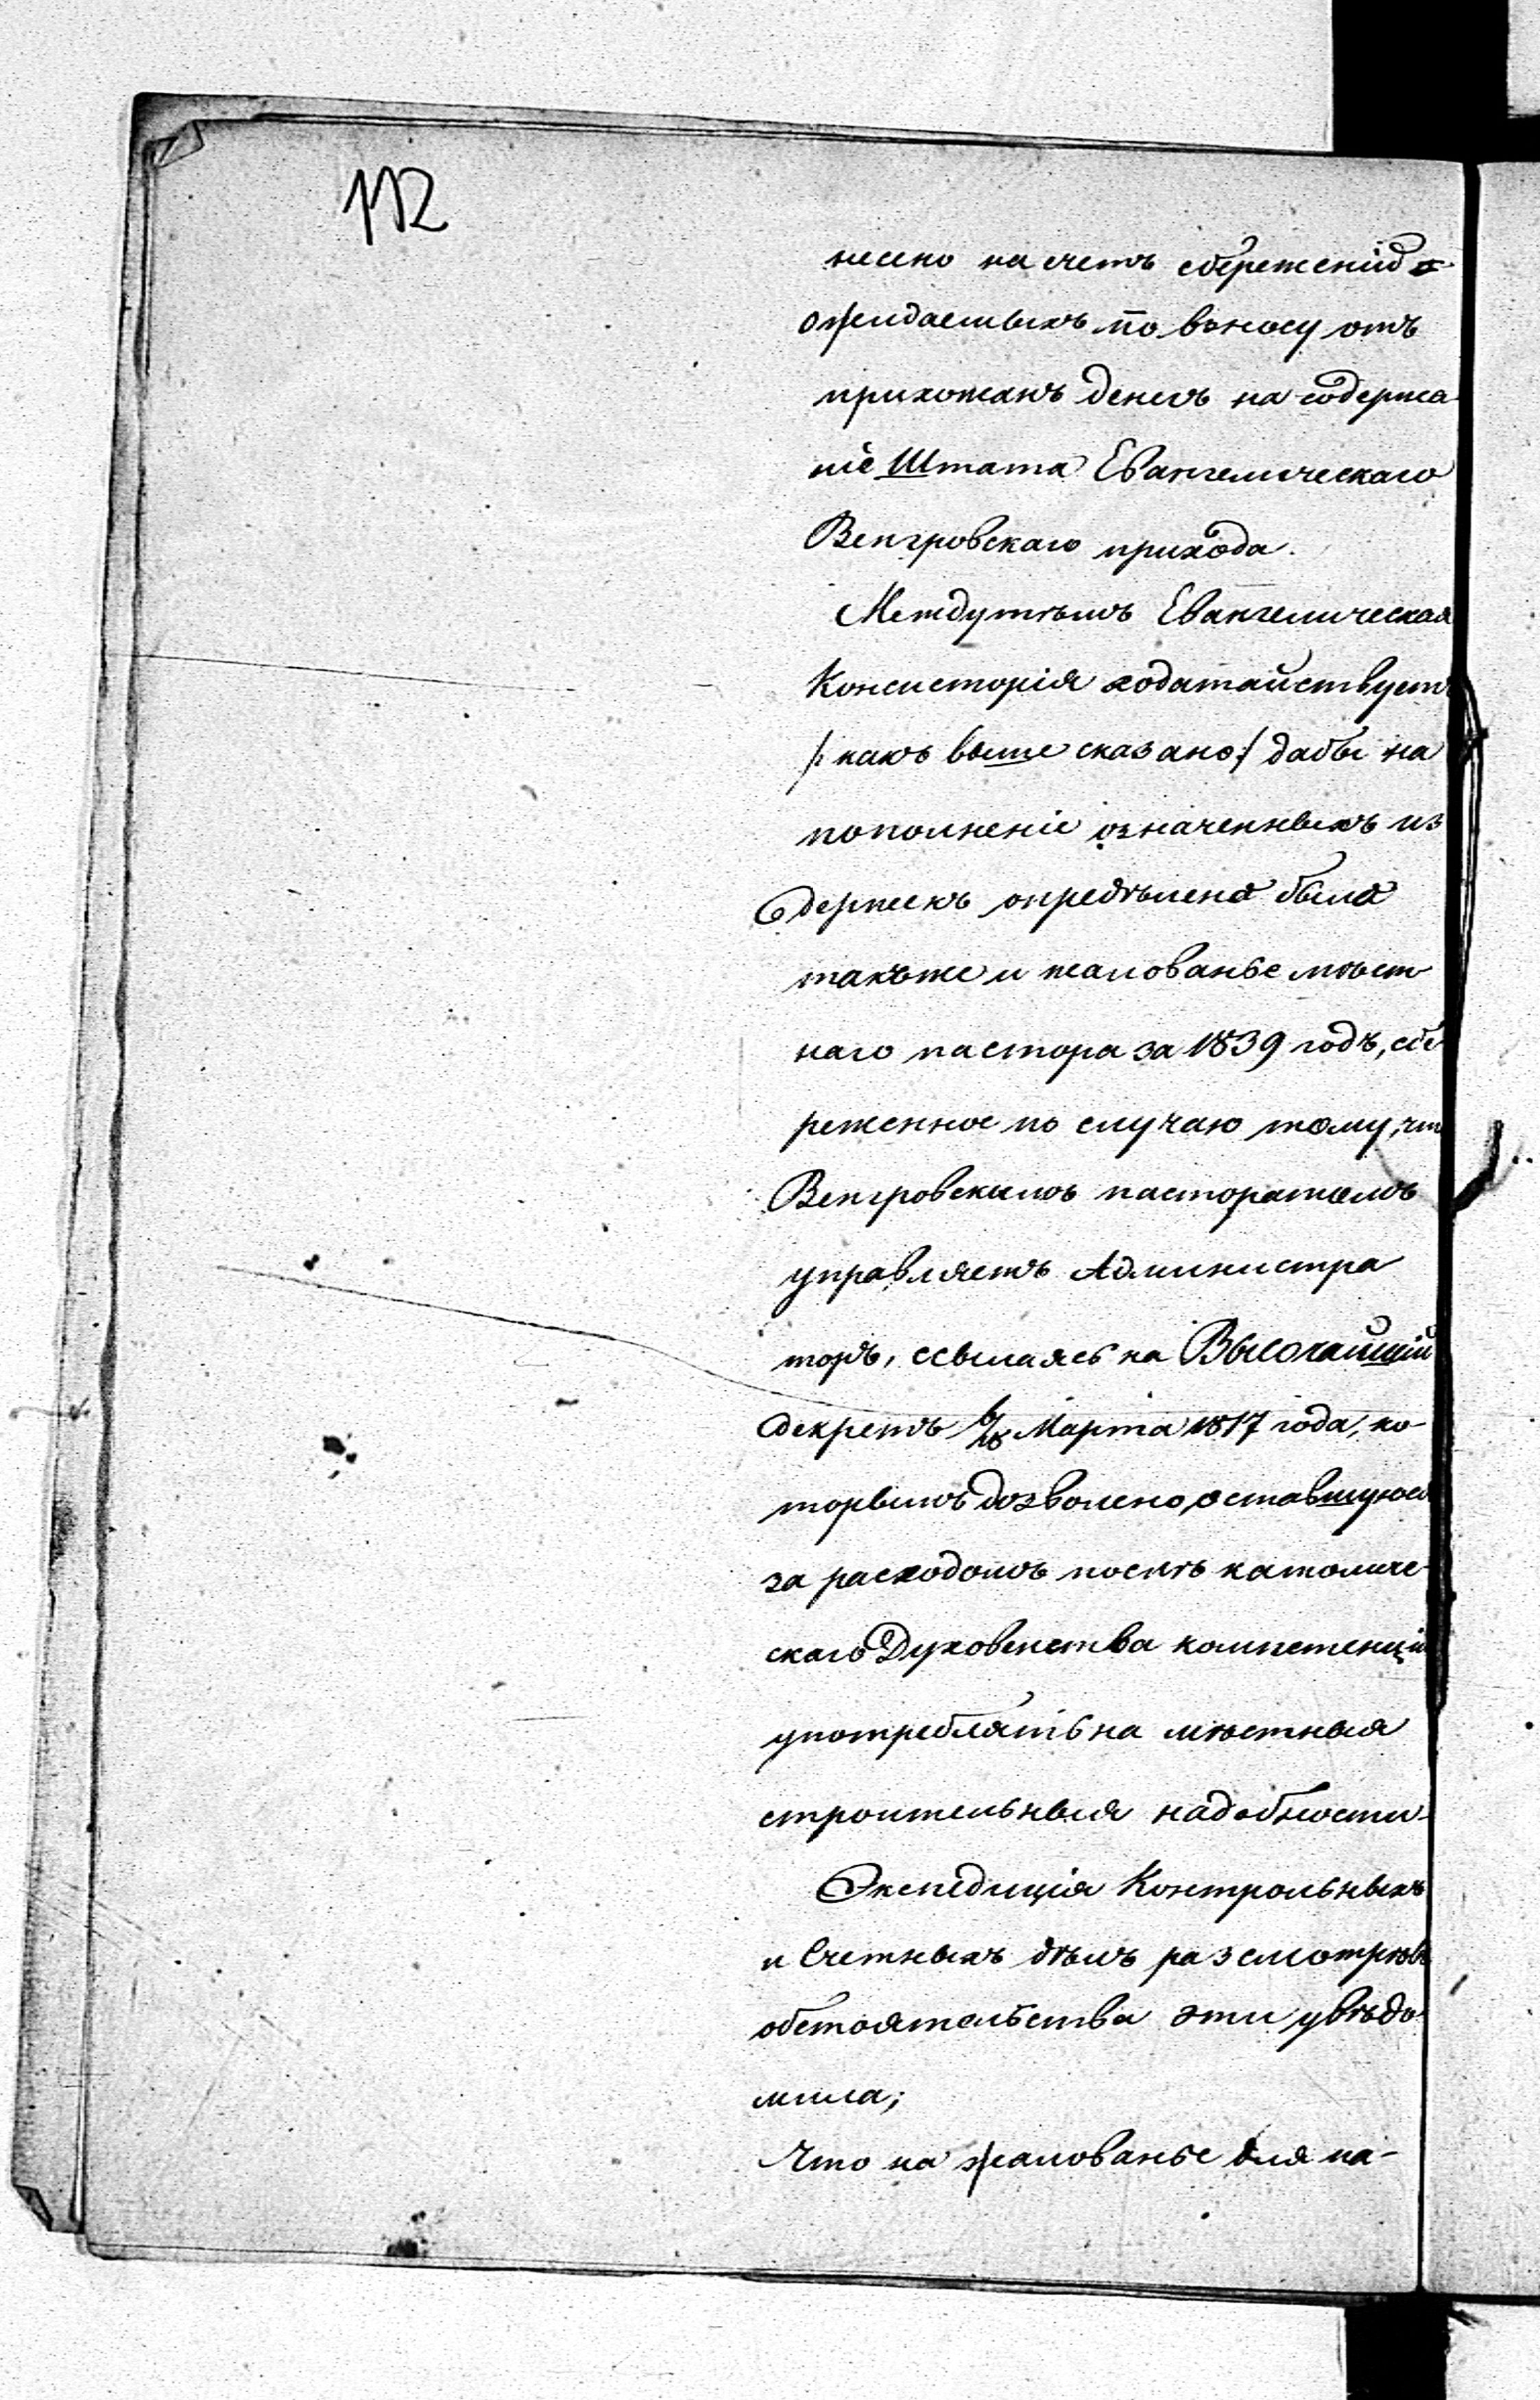 112
несено на счетъ сбереженій
ожидаемыхъ по взносу отъ
прихожанъ денегъ на содержа
ніе Штата Евангелическаго
Венгровскаго прихода.
Междутѣмъ Евангелическая
Консисторія ходатайствуетъ
/: какъ выше сказано :/ дабы на
пополненіе означенныхъ из
держекъ опредѣлена была
такъже и жалованье мѣст
наго пастора за 1839 годъ, сбе
реженное по случаю тому, что
Венгровскимъ пасторатомъ
управляетъ Администра
торъ, ссылаясь на Высочайшій
декретъ 6/18 Марта 1817 года, ко-
торымъ дозволено, оставшуюся
за расходомъ послѣ католиче-
скаго Духовенства компетенцію
употреблять на мѣстныя
строительныя надобности.
Экспедиція Контрольныхъ
и Счетныхъ дѣлъ разсмотрѣвъ
обстоятельства эти увѣдо
мила;
Что на жалованье для па-